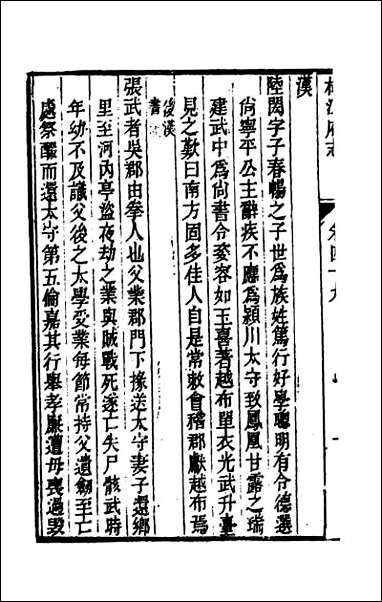 漢
陸閎字子春暢之子世爲族姓篤行好學聰明有令德選
尙寧平公主辭疾不應爲潁川太守致鳳凰甘露之瑞
建武中爲尙書令姿容如玉喜著越布單衣光武升臺
見之歎曰南方固多佳人自是常敕會稽郡獻越布焉
後漢書
張武者吳郡由拳人也父業郡門下掾送太守妻子還鄉
里至河內亭盜夜劫之業與賊戰死遂亡失尸骸武時
年幼不及識父後之太學受業每節常持父遺劒至亡
處祭醊而還太守第五倫嘉其行舉孝廉遭母喪過毀